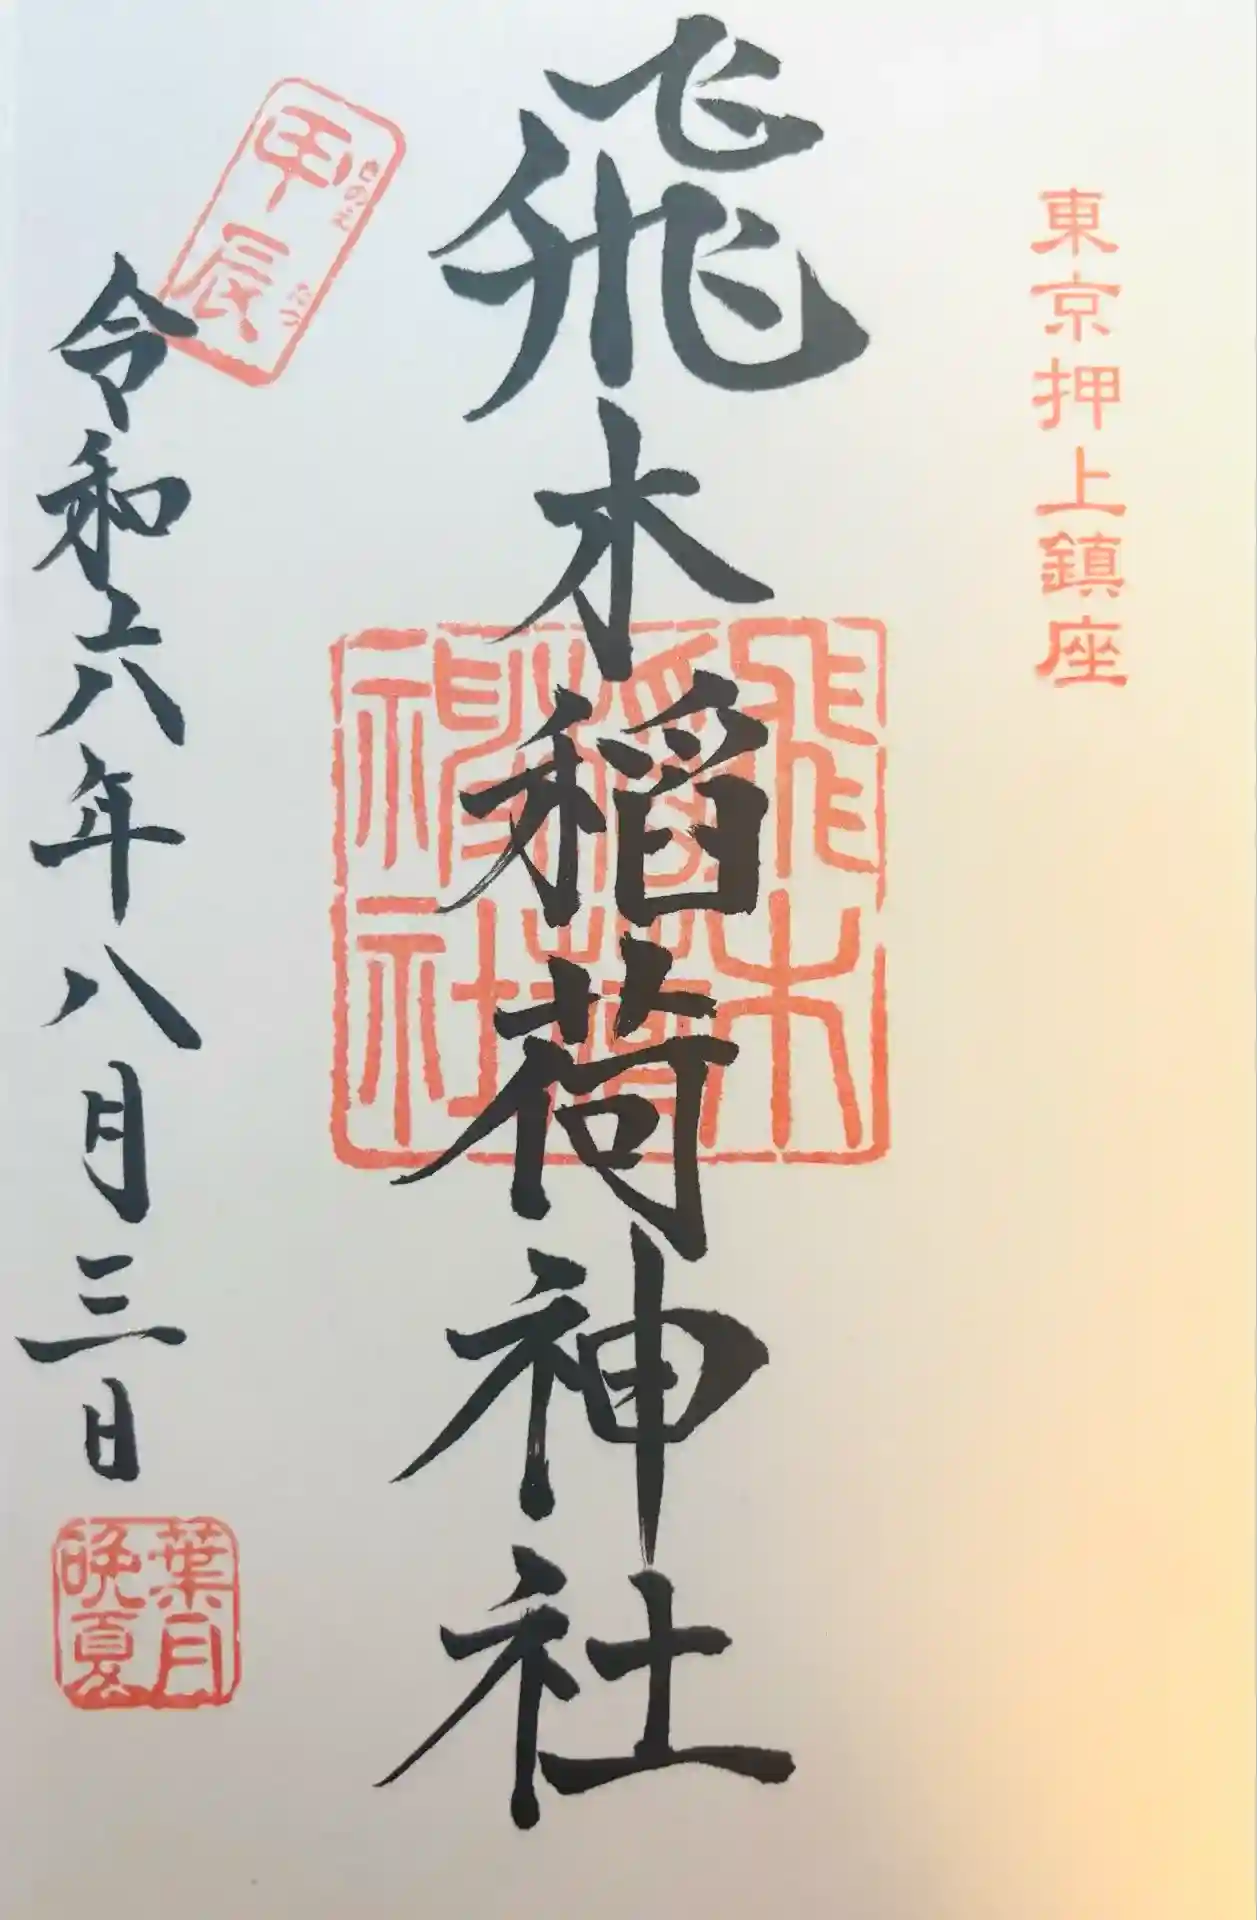 東京押上鎮座
飛木稲荷神社
飛木
稲荷
神社
甲辰
きのえ たつ
令和六年八月三日
葉月
晩夏